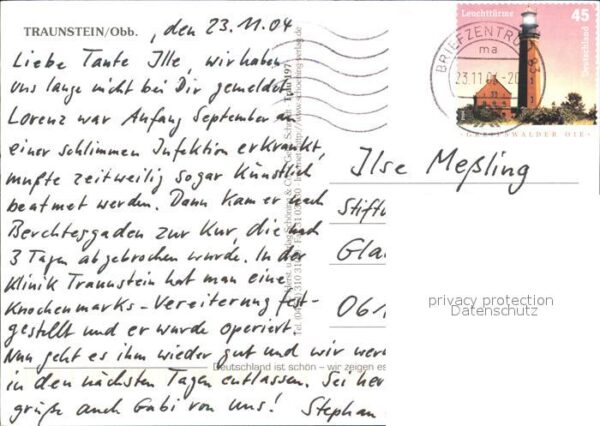 TRAUNSTEIN/Obb. , den 23.11.04
Liebe Tante Ille, wir haben
uns lange nicht bei Dir gemeldet
Lorenz war Anfang September an
einer schlimmen Infektion erkrankt,
mußte zeitweilig sogar künstlich
beatmet werden. Dann kam er nach
Berchtesgaden zur Kur, die nach
3 Tagen abgebrochen wurde. In der
Klinik Traunstein hat man eine
Knochenmarks-Vereiterung fest-
gestellt und er wurde operiert.
Nun geht es ihm wieder gut und wir
in den nächsten Tagen entlassen. Sei
grüße auch Gabi von uns! Stephan
Deutschland ist schön – wir zeigen es
Leuchttürme 45
Deutschland
GREIFSWALDER OIE
BRIEFZENTRUM 83
ma
23.11.04
Ilse Meßling
Stift
Gla
06
privacy protection
Datenschutz